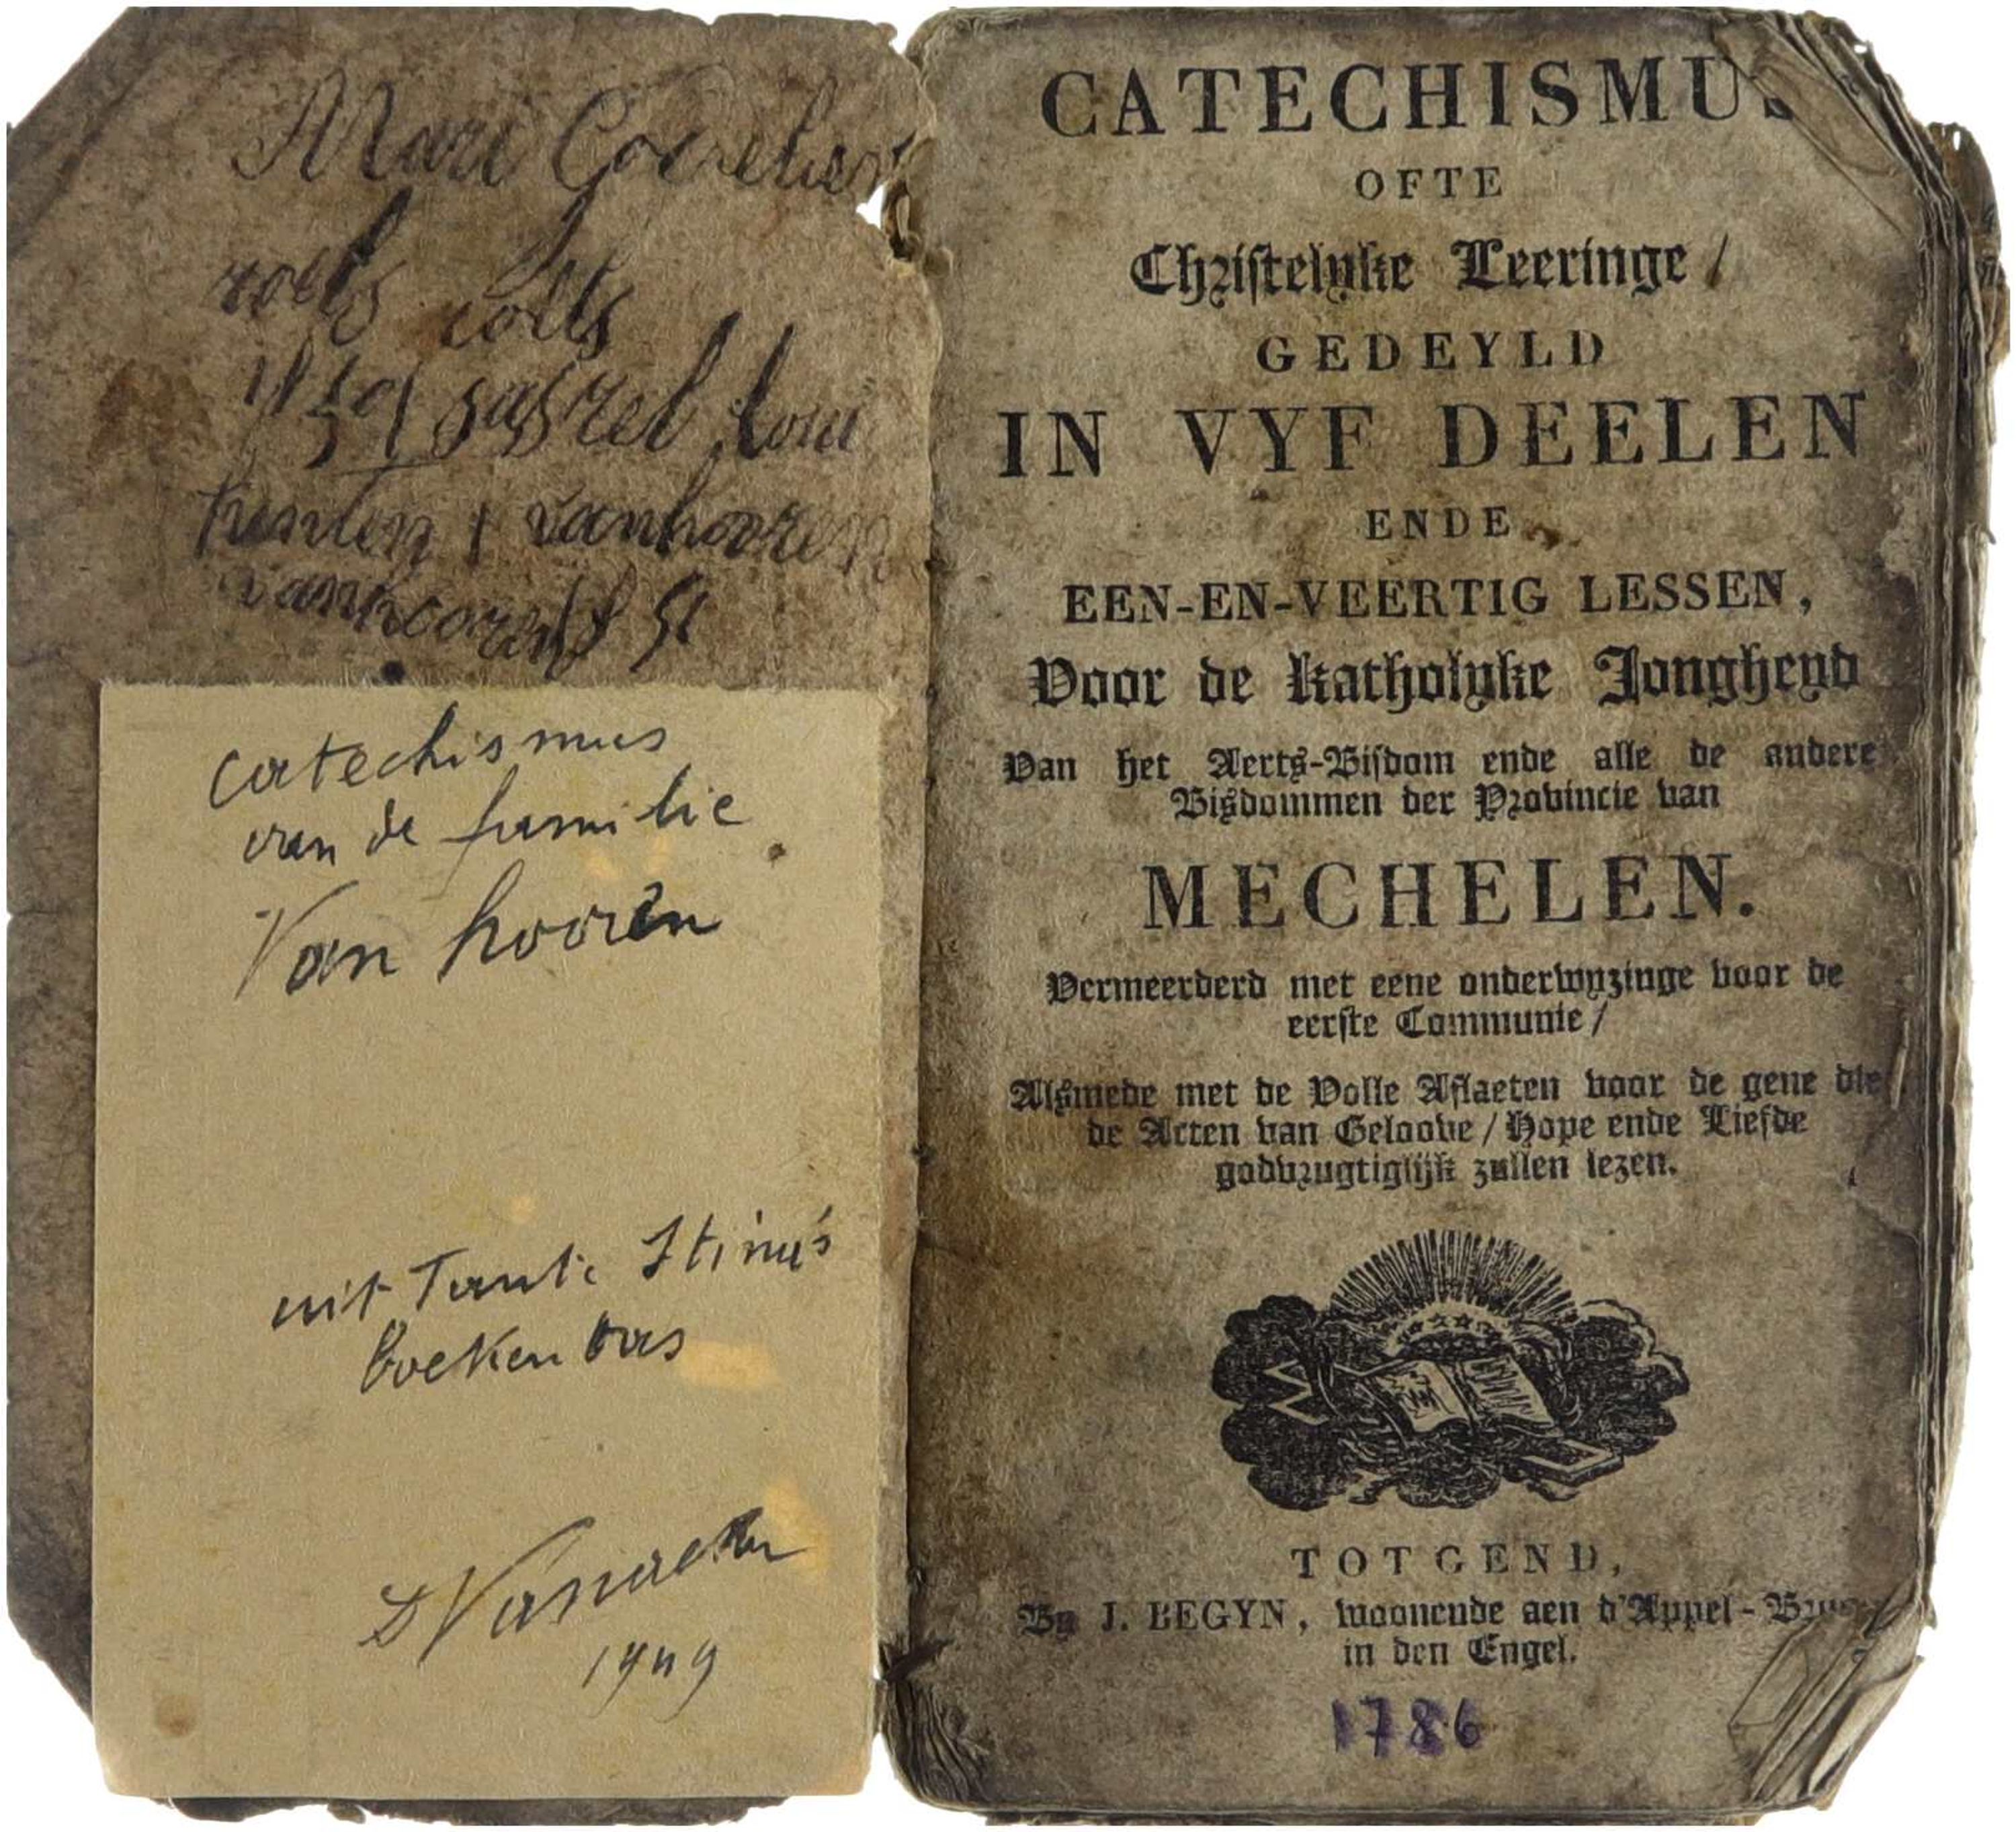 roels roels
vanhooren
catechismus
van de familie
Van hooren
uit Tante
boeken
1949
CATECHISMUS
OFTE
Christelyke Leeringe /
GEDEYLD
IN VYF DEELEN
ENDE
EEN-EN-VEERTIG LESSEN,
Voor de Katholyke Jongheyd
Van het Aerts-Bisdom ende alle de andere
Bisdommen der Provincie van
MECHELEN.
Vermeerderd met eene onderwyzinge voor de
eerste Communie /
Alsmede met de Volle Aflaeten voor de gene die
de Acten van Geloove / Hope ende Liefde
godvrugtiglijk zullen lezen.
TOT GEND,
By J. BEGYN, woonende aen d'Appel-Brug
in den Engel.
1786